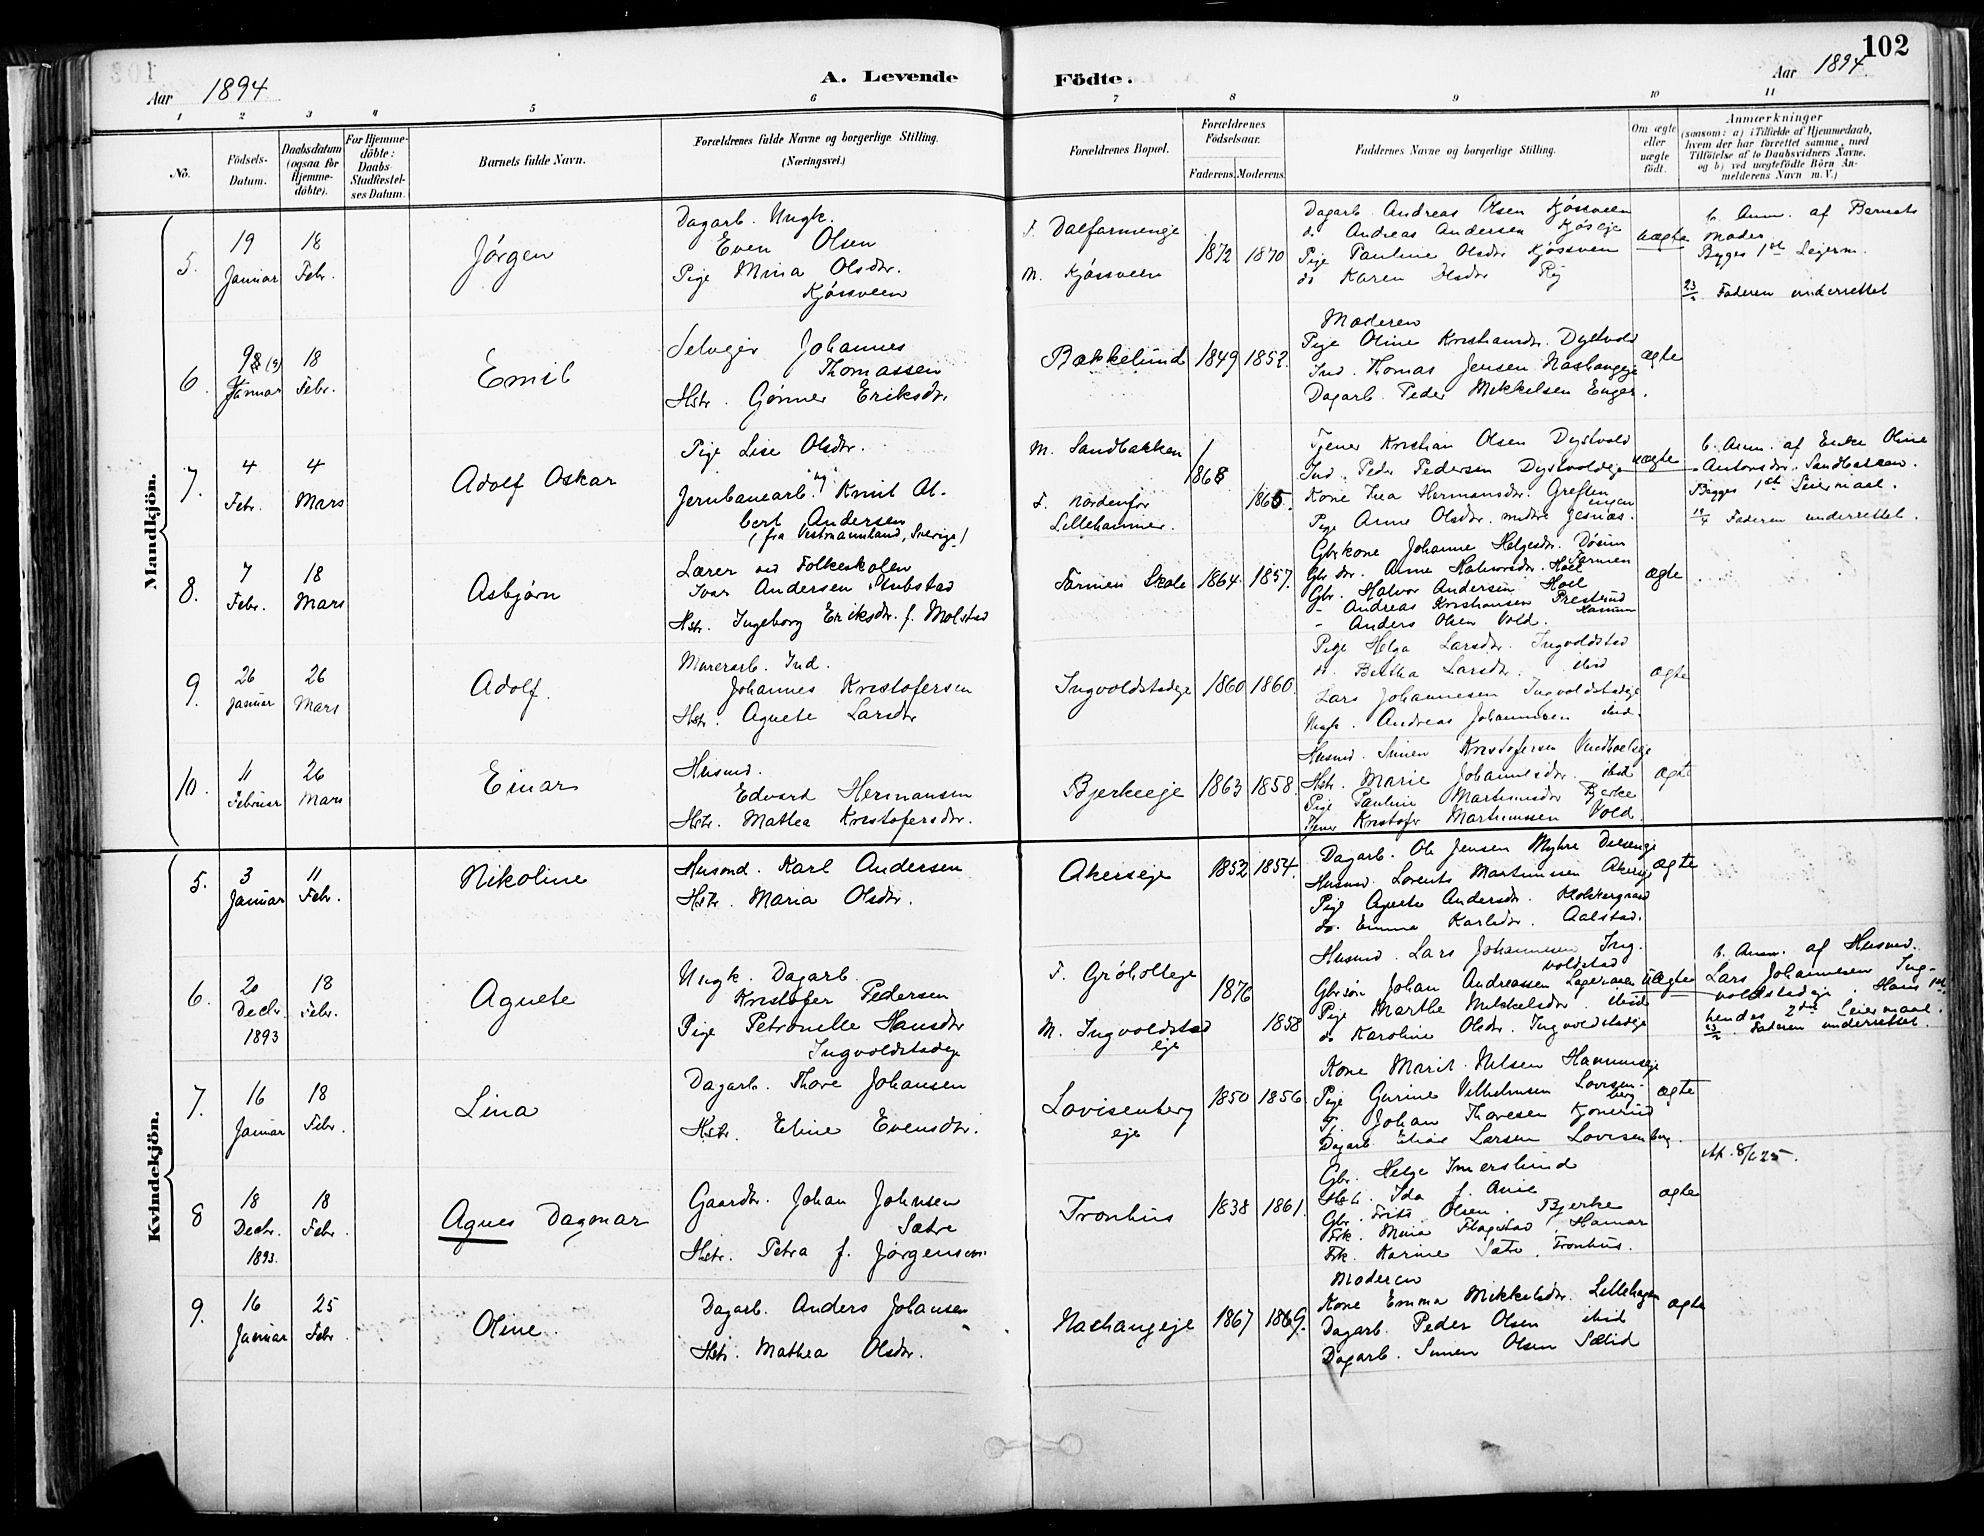 102
Aar 1894
A. Levende Födte.
Aar 1894
1 2 3 4 5 6 7 8 9 10 11
No.
Födsels-Datum.
Daabsdatum (ogsaa for Hjemme-döbte).
For Hjemme-döbte: Daabs-Stadfæstel-ses Datum.
Barnets fulde Navn.
Forældrenes fulde Navne og borgerlige Stilling.
(Næringsvei.)
Forældrenes Bopæl.
Forældrenes Födselsaar.
Faderens. Moderens.
Faddernes Navne og borgerlige Stilling.
Om ægte eller uægte födt.
Anmærkninger
(saasom: a) i Tilfælde af Hjemmedaab,
hvem der har forrettet samme, med
Tilföielse af to Daabsvidners Navne.
og b) ved uægtefödte Börn An-
melderens Navn m. V.)
Mandkjön.
5. 19 Januar 18 Febr. Jörgen
Dagarb. Ungk.
Even Olsen
Pige Mina Olsdtr.
Kjøsveen
F. Dalfarmenge
M. Kjøsveen
1872 1870
Dagarb. Andreas Olsen Kjøsveen
do Andreas Andersen Kjøseje
Pige Pauline Olsdtr Kjøsveen
do Karen Olsdtr
uægte
b. Anm. af Barnets
Moder
Begges 1ste Leierm.
Faderen underrettet
6. Januar 18 Febr. Emil
Selveier Johannes
Thomassen
Hstr. Gønner Eriksdtr
Bækkelund 1849 1852.
Moderen
Pige Oline Kristiansdtr. Dystvold
Ind. Thomas Jensen Nashaugeje
Dagarb. Peder Mikkelsen Enger.
ægte
7. 4 Febr. 4 Mars Adolf Oskar
Pige Lise Olsdtr.
Jernbanearb. Ug Knut Al-
bert Andersen
(fra Vestmanland, Sverige)
M. Sandbakken
F. Nordenfor
Lillehammer.
1868 1865.
Tjener Kristian Olsen Dystvold
Ind. Peder Pedersen Dystvoldeje
Kone Ina Hermansdtr. Greften
Pige Anne Olsdtr. nedre Jesnæs.
uægte
b. Anm. af Enke Oline
Antonsdtr. Sandbakken.
Begges 1ste Leiermaal.
19/4 Faderen underrettet.
8. 7 Febr. 18 Mars Asbjørn
Lærer ved Folkeskolen
Ivar Andersen Stubstad
Hstr. Ingeborg Eriksdtr. f. Molstad
Farmen Skole 1864. 1857.
Gbrkone Johanne Helgesdtr. Døsim
Gbr dtr. Anne Halvorsdtr. Hoel
Gbr. Halvor Andersen Hoel
" Andreas Kristiansen Prestrud
" Anders Olsen Vold.
ægte
9. 26 Januar 26 Mars Adolf.
Murerarb. Ind.
Johannes Kristofersen
Hstr. Agnete Larsdtr
Ingvoldstadeje 1860 1860.
Pige Helga Larsdtr. Ingvoldstad
do. Bertha Larsdtr. ibid
Lars Johannesen Ingvoldstadeje
Ungk. Andreas Johannesen ibid.
ægte
10. 11 Februar 26 Mars Einar
Husmd.
Edvard Hermansen
Hstr. Mathea Kristofersdtr.
Bjerkeeje 1863 1858.
Husmd. Simen Kristofersen
Hstr. Marie Johannesdtr. ibid
Pige Pauline Martinusdtr Bjerke
Tjener Kristofer Martinussen Vold.
ægte
Kvindekjön.
5. 3 Januar 11 Febr. Nikoline
Husmd. Karl Andersen
Hstr. Maria Olsdtr.
Akerseje 1852 1854.
Dagarb. Ole Jensen Myhre
Husmd. Lorents Martinussen Akerseje
Pige Agnete Andersdtr. Klokkergaard
do. Emma Karlsdtr. Aalstad.
ægte
6. 20 Decbr. 1893 18 Febr. Agnete
Ungk. Dagarb.
Kristofer Pedersen
Pige Petronelle Hansdtr
Ingvoldstadeje
F. Grøholteje
M. Ingvoldstad
eje
1876 1858
Husmd. Lars Johannesen Ing-
voldstad
Gbrsøn Johan Andreassen
Pige Marthe Mikkelsdtr. ibid
do Karoline Olsdtr. Ingvoldstadeje
uægte
b. Anm. af Husmd.
Lars Johannesen Ing-
voldstadeje. Hans 1ste
hendes 2det Leiermaal.
23/2 Faderen underrettet.
7. 16 Januar 18 Febr. Lina
Dagarb. Thore Johansen
Hstr. Eline Evensdtr.
Lovisenberg
eje
1850 1856
Kone Marit Nilsen Hammerseje
Pige Gurine Vilhelmsen Lovisen-
berg
Tj. Johan Thoresen Kjonerud
Dagarb. Elias Larsen Lovisenberg.
ægte
8 18 Decbr. 1893. 18 Febr. Agnes Dagmar
Gaardbr. Johan Johnsen
Sætre
Hstr. Petra f. Jørgensen
Tronhus 1838 1861.
Gbr. Helge Imerslund
Hstr. Ida f. Arne
Gbr. Frits Olsen. Bjerke
Frk. Mina Flagstad Hamar
Frk. Karine Sætre. Tronhus.
ægte
Att. 8/6 25.
9. 16 Januar 25 Febr Oline.
Dagarb. Anders Johansen
Hstr. Mathea Olsdtr.
Nashaugeje 1867 1869.
Moderen
Kone Emma Mikkelsdtr. Lillehagen
Dagarb. Peder Olsen ibid
Dagarb. Simen Olsen Sælid
ægte